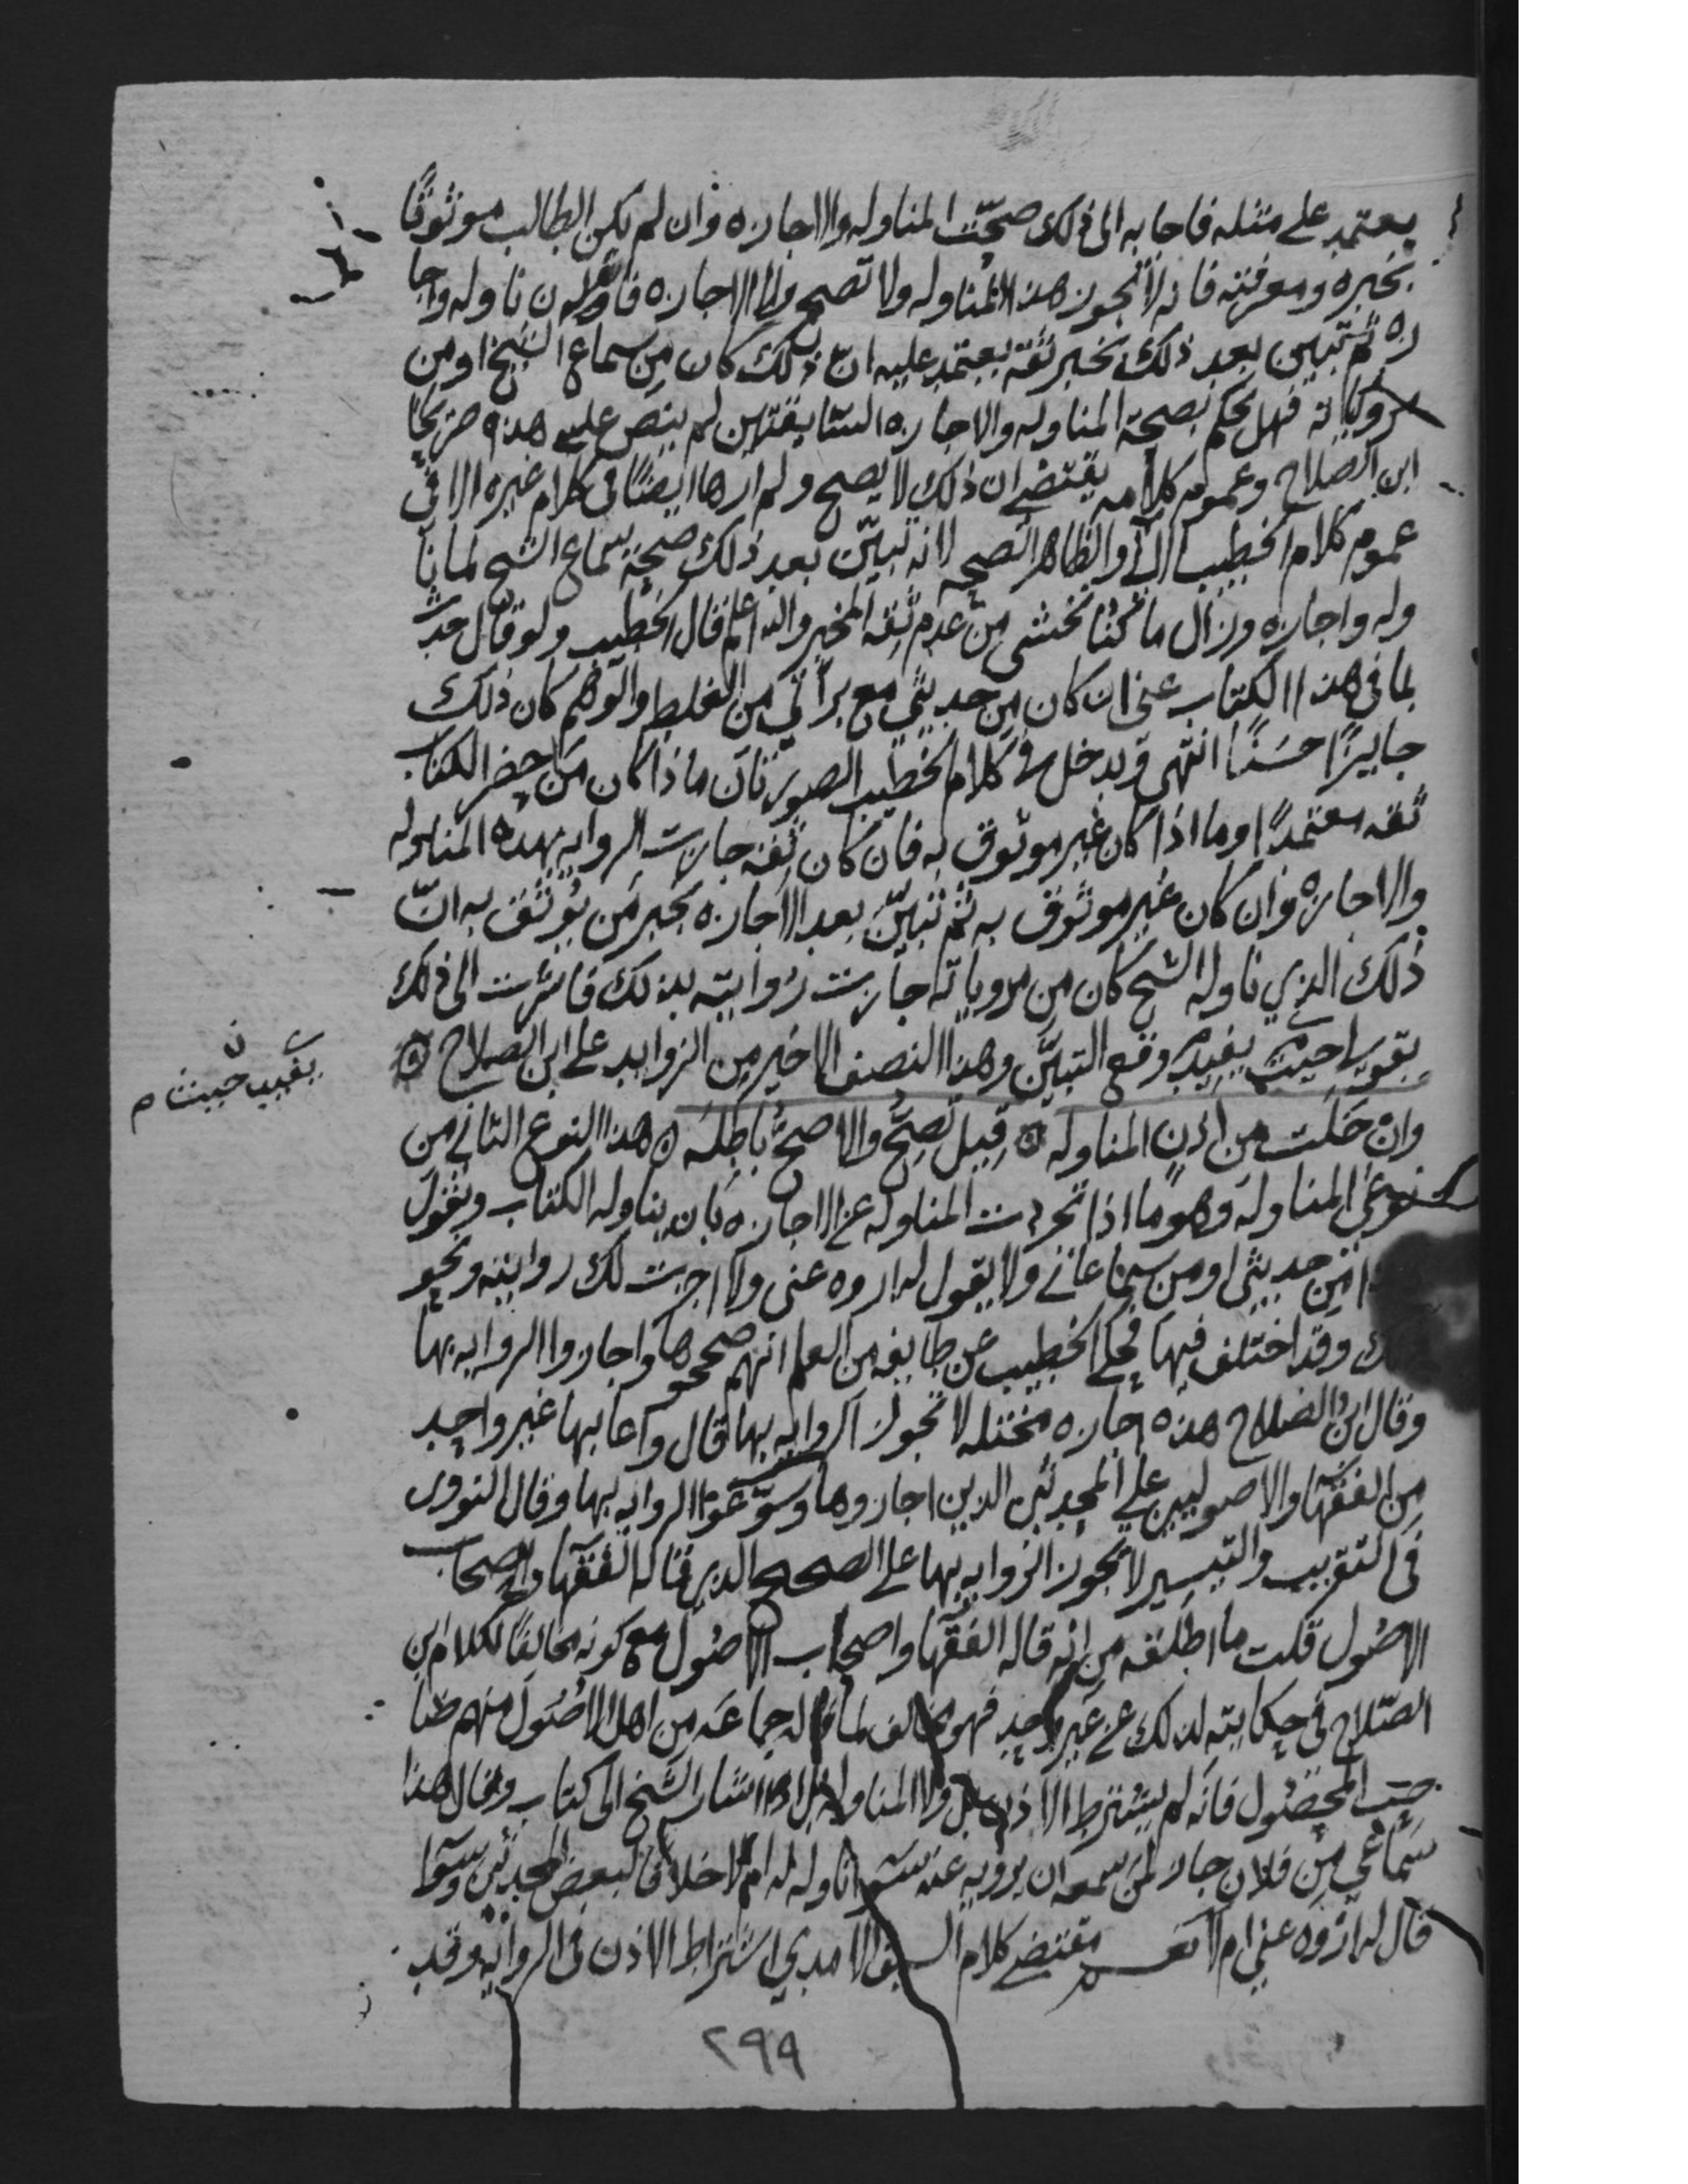 يعتمد على مثله فاجابه الى ذلك صحّت المناوله والاجازه وان لم يكن الطالب موثوقًا
بخبره ومعرفته فانه لا تجوز هذه المناوله ولا تصح ولا الاجازه فان ناوله واجا
زه ثم تبين بعد ذلك بخبر ثقة يعتمد عليه انّ ذلك كان من سماع الشيخ او من
مروياته فهل يحكم بصحة المناوله والاجازه السابقتين لم ينص على هذه صريحًا
ابن الصلاح وعموم كلامه يقتضي ان ذلك لا يصح ولم ارها ايضًا في كلام غيره الا في
عموم كلام الخطيب الآتي والظاهر الصحه لانه تبيّن بعد ذلك صحة سماع الشيخ لما نا
وله واجازه وزال ما كنّا نخشى من عدم ثقة المخبر والله اعلم قال الخطيب ولو قال حدث
بما في هذا الكتاب عني ان كان من حديثي مع براتي من الغلط والوهم كان ذلك
جايزًا حسنًا انتهى ويدخل في كلام الخطيب الصورتان ما اذا كان من احضر الكتاب
ثقه معتمدًا وما اذا كان غير موثوق به فان كان ثقة جازت الروايه بهذه المناوله
والاجازه وان كان غير موثوق به ثم تبيّن بعد الاجازه بخبر من يوثق به انّ
ذلك الذي ناوله الشيخ كان من مروياته جازت روايته بذلك فاشرت الى ذلك
بقولي يفيد حيث وقع التبيّن وهذا النصف الاخير من الزوايد على ابن الصلاح
يفيد حيث م
وان خلت من اذن المناوله قيل تصحّ والاصحّ باطله هذا النوع الثاني من
نوعي المناوله وهو ما اذا تجردت المناوله عن الاجازه بان يناوله الكتاب ويقول
من حديثي او من سماعاتي ولا يقول له اروه عني ولا اجزت لك روايته ونحو
ك وقد اختلف فيها فحكى الخطيب عن طايفه من العلما انهم صححوها واجازوا الروايه بها
وقال ابن الصلاح هذه اجازه مختله لا تجوز الروايه بها قال وعابها غير واحد
من الفقها والاصوليين على المحدثين الذين اجازوها وسوّغوا الروايه بها وقال النووى
في التقريب والتيسير لا تجوز الروايه بها على الصحيح الذي قاله الفقها واصحاب
الاصول قلت ما اطلقه من انه قاله الفقها واصحاب الاصول مع كونه مخالفًا لكلام ابن
الصّلاح في حكايته لذلك عن غير واحد فهو مخالف لما قاله جماعه من اهل الاصول منهم صا
حب المحصول فانه لم يشترط الاذن بل ولا المناوله بل اذا اشار الشيخ الى كتاب وقال هذا
سماعي من فلان جاز لمن سمعه ان يرويه عنه سوا ناوله له ام لا خلافًا لبعض المحدثين وسوا
قال له اروه عني ام لا نعم مقتضى كلام السيف الامدي اشتراط الاذن في الروايه وقد
٢٩٩